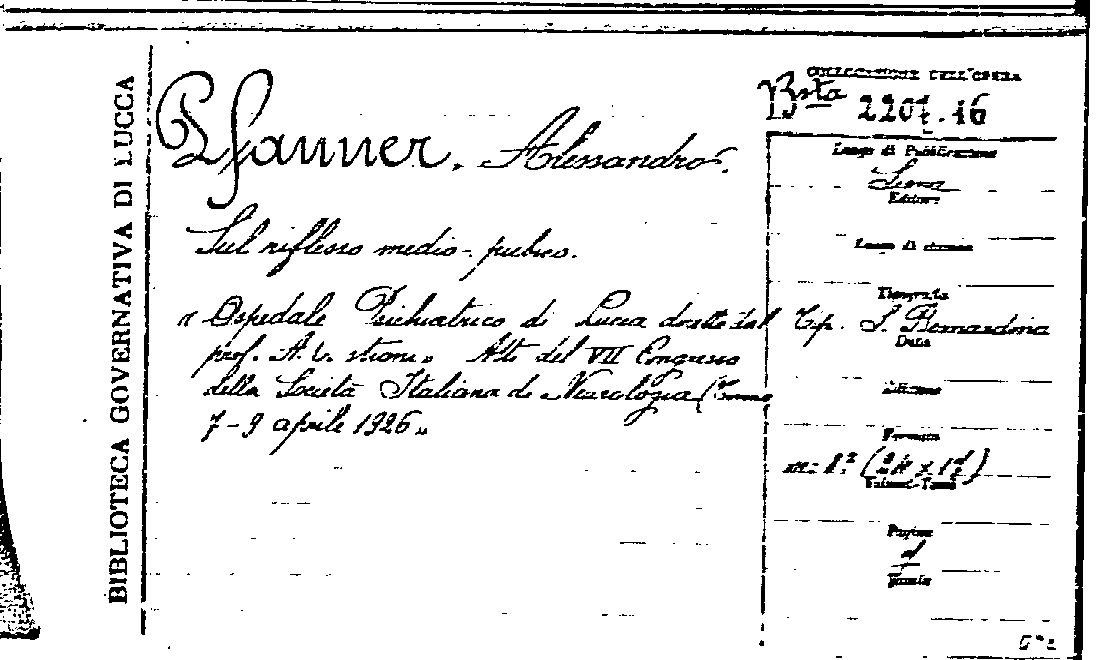 BIBLIOTECA GOVERNATIVA DI LUCCA
Pfanner, Alessandro.
Sul riflesso medio-pubico.
" Ospedale Psichiatrico di Lucca
prof. A. Atti del VII Congresso
della Società Italiana di Neurologia (
7-9 aprile 1926 "
COLLOCAZIONE DELL'OPERA
Bsta 2207.16
Luogo di Pubblicazione
Siena
Editore
Luogo di stampa
Tipografia
Tip. S. Bernardino
Data
Edizione
Formato
in-8°
Volume-Tomo
Pagine